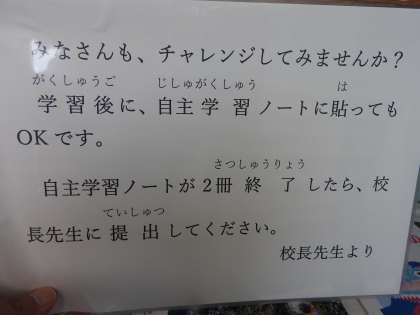 みなさんも、チャレンジしてみませんか？
がくしゅうご じしゅがくしゅう は
学習後に、自主学習ノートに貼っても
OKです。
さつしゅうりょう
自主学習ノートが２冊終了したら、校
ていしゅつ
長先生に提出してください。
校長先生より